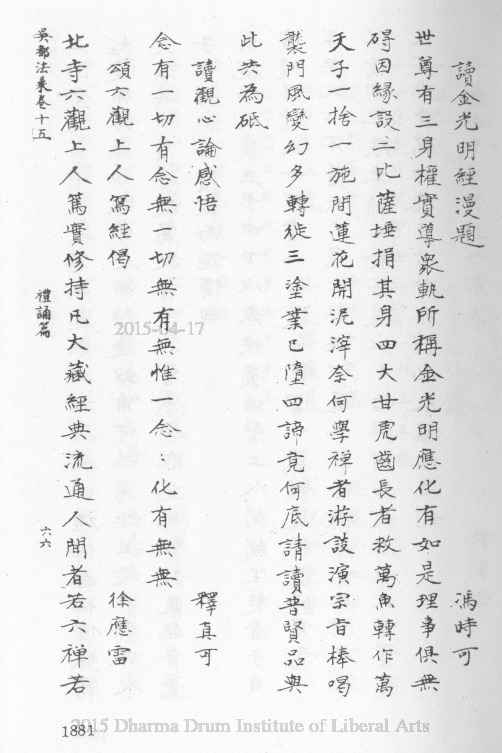 讀金光明經漫題 馮時可
世尊有三身權實導眾軌所稱金光明應化有如是理事俱無
碍因緣設三叱薩埵捐其身四大甘虎齒長者救萬魚轉作萬
天子一捨一施間蓮花開泥滓奈何學禪者游談演宗旨棒喝
襲門風變幻多轉徙三塗業已墮四諦竟何底請讀普賢品與
此共為砥
讀觀心論感悟 釋真可
念有一切有念無一切無有無惟一念：化有無無
頌六觀上人寫經偈 徐應雷
北寺六觀上人篤實修持凡大藏經典流通人間者若六禪若
吳都法乘卷十五 禮誦篇 六六
1881
2015-04-17
2015 Dharma Drum Institute of Liberal Arts